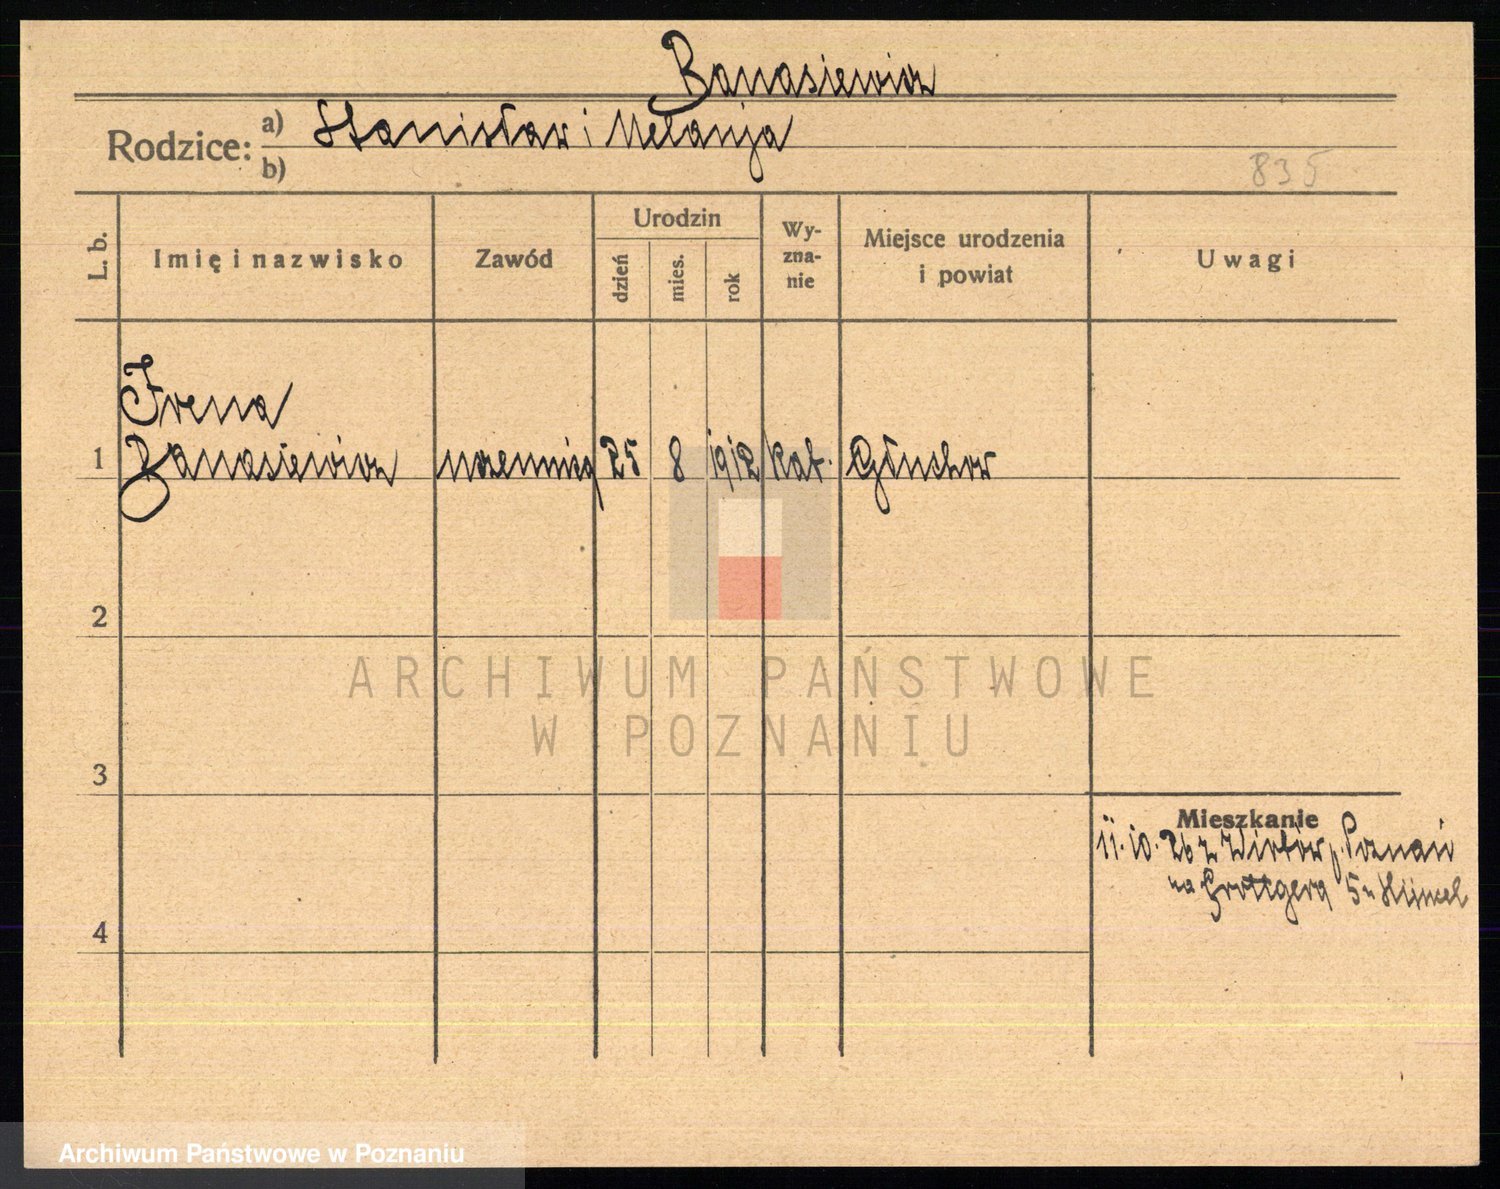 Banasiewicz
Rodzice:
a) Stanisław i Melanja
b)
835
L. b.
Imię i nazwisko
Zawód
Urodzin
dzień
mies.
rok
Wy-
zna-
nie
Miejsce urodzenia
i powiat
Uwagi
Irena
1 Banasiewicz uczennica 25 8 1912 kat. Głuchow
2
ARCHIWUM PAŃSTWOWE
W POZNANIU
3
Mieszkanie
11.10.26 z p. Poznań
na Grottgera 5
4
Archiwum Państwowe w Poznaniu